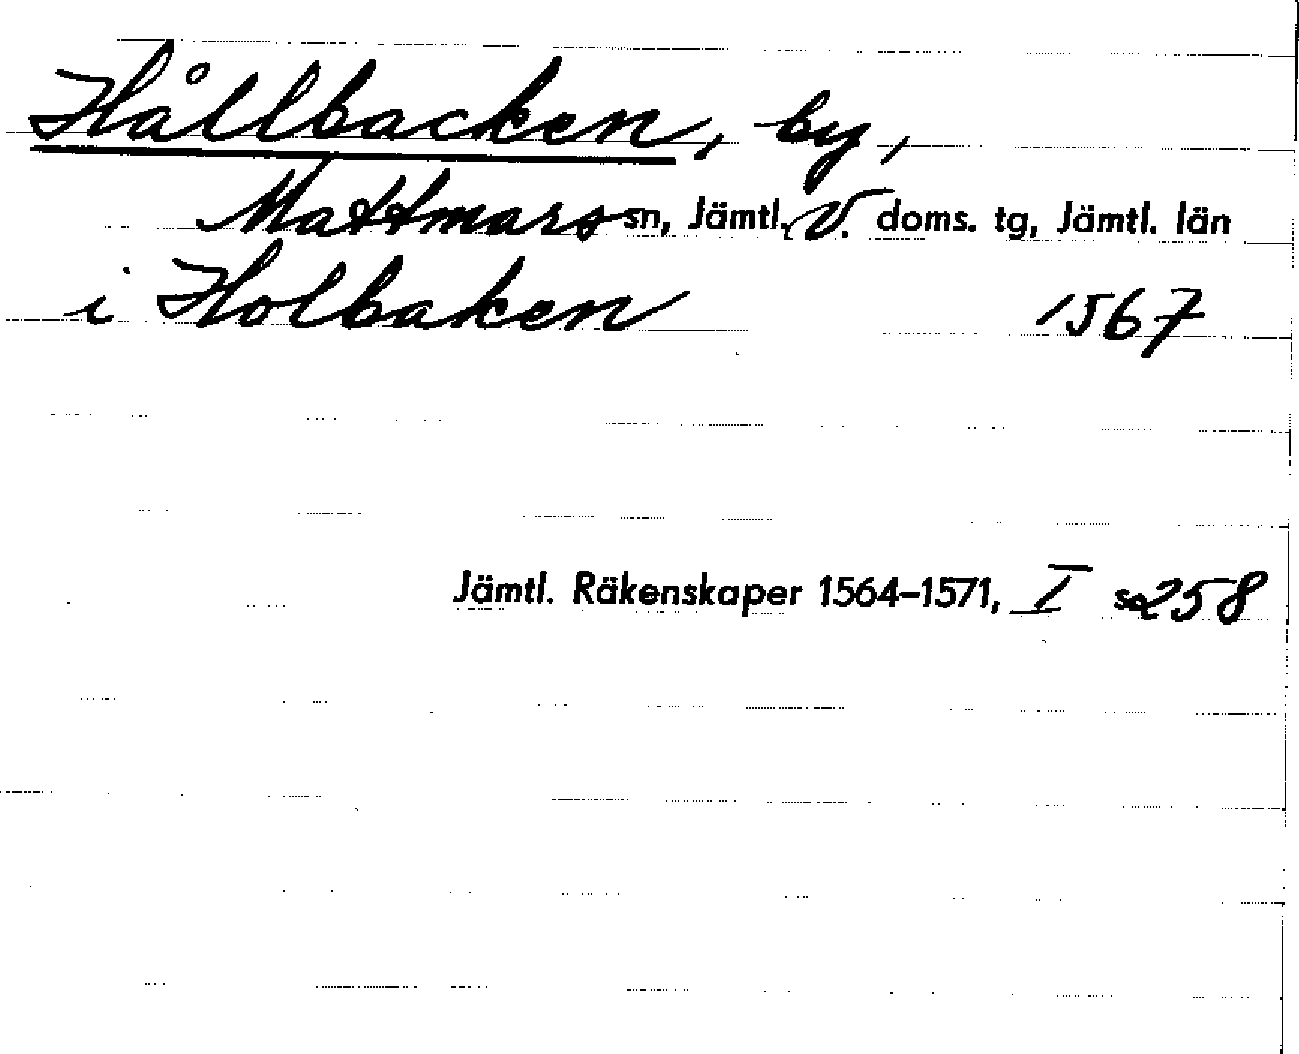 Hållbacken, by,
Mattmars sn, Jämtl. V. doms. tg, Jämtl. län
i Holbaken 1567
Jämtl. Räkenskaper 1564–1571, I s. 258